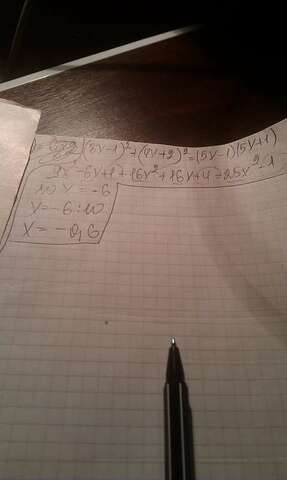 (3x-1)²+(4x+2)²=(5x-1)(5x+1)
9x²-6x+1+16x²+16x+4=25x²-1
10x=-6
x=-6:10
x=-0,6